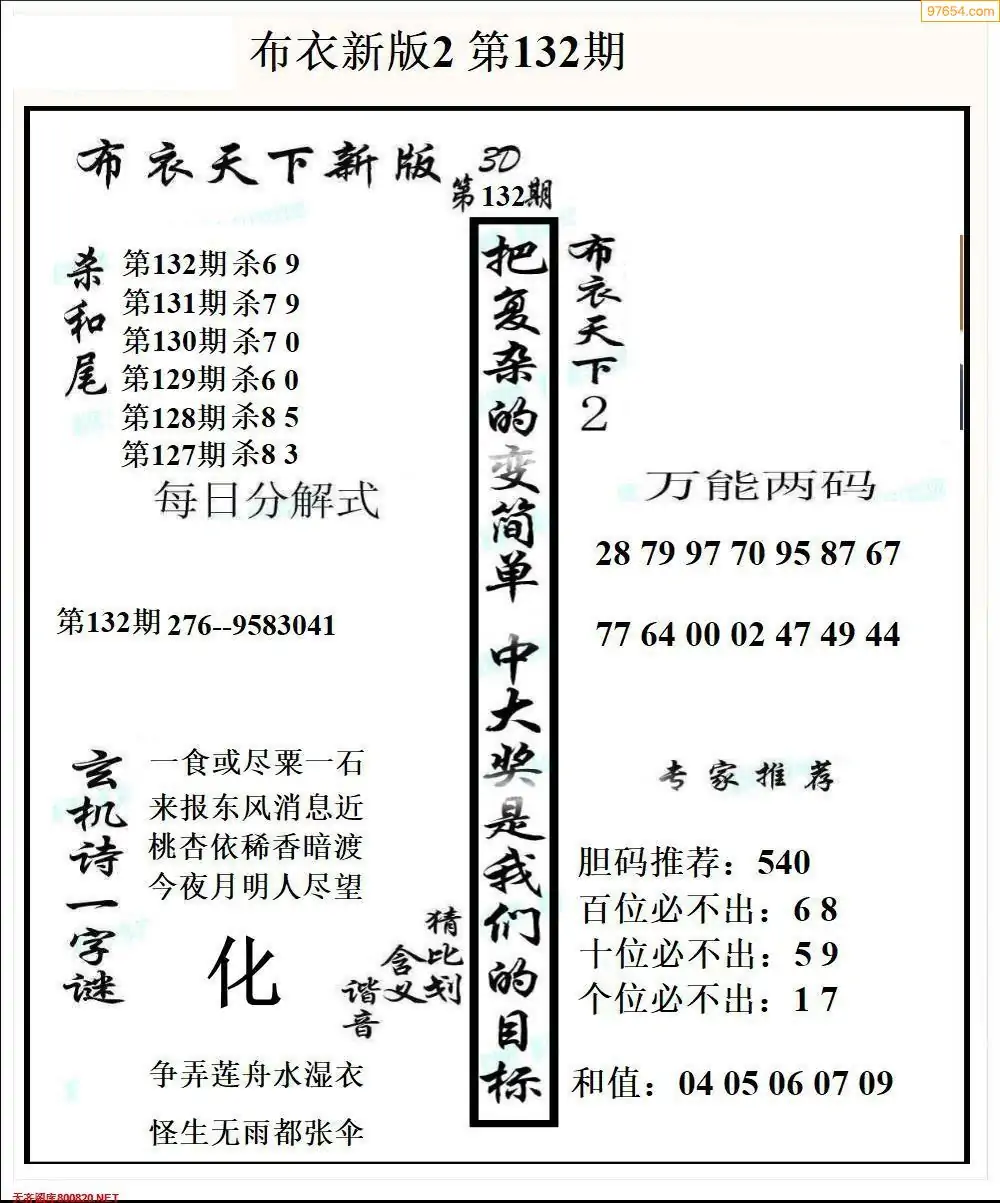 97654.com
布衣新版2 第132期
布衣天下新版 3D
第132期
杀和尾
第132期杀6 9
第131期杀7 9
第130期杀7 0
第129期杀6 0
第128期杀8 5
第127期杀8 3
每日分解式
第132期276--9583041
玄机诗一字谜
一食或尽粟一石
来报东风消息近
桃杏依稀香暗渡
今夜月明人尽望
化
猜比划
含义
谐音
争弄莲舟水湿衣
怪生无雨都张伞
把复杂的变简单 中大奖是我们的目标
布衣天下2
万能两码
28 79 97 70 95 87 67
77 64 00 02 47 49 44
专家推荐
胆码推荐：540
百位必不出：6 8
十位必不出：5 9
个位必不出：1 7
和值：04 05 06 07 09
天齐图库800820.NET